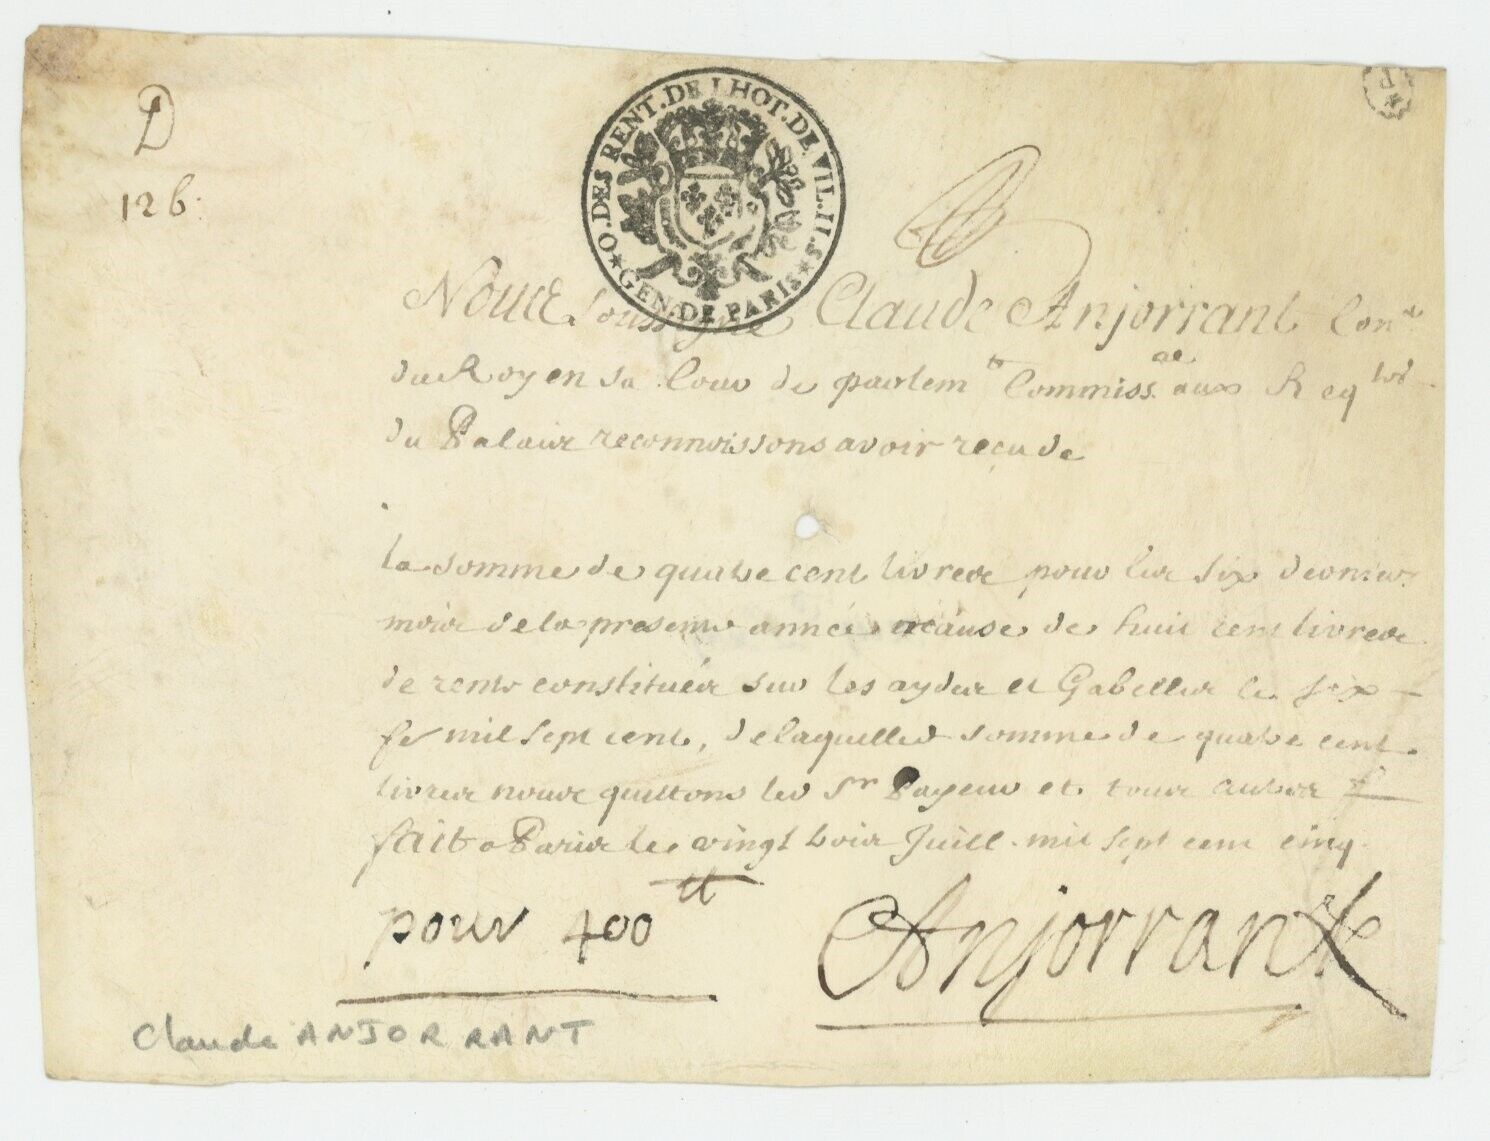 D
126.
O. DES RENT. DE LHOT. DE VIL. II. S.
GEN. DE PARIS
Nous Soussigné Claude Anjorrant Con.er
du Roy en sa Cour de parlem.t Commiss.re aux Req.tes
du Palais reconnoissons avoir reçu de
la somme de quatre cent livres pour les six derniers
mois de la presente année acause de huit cent livres
de rente constituée sur les aydes et Gabelles le six
mil sept cent, de laquelle somme de quatre cent
livres nous quittons les Sr Payeur et tous autres
fait a Paris le vingt trois Juill. mil sept cent cinq
pour 400 tt
Anjorrant
Claude ANJORRANT